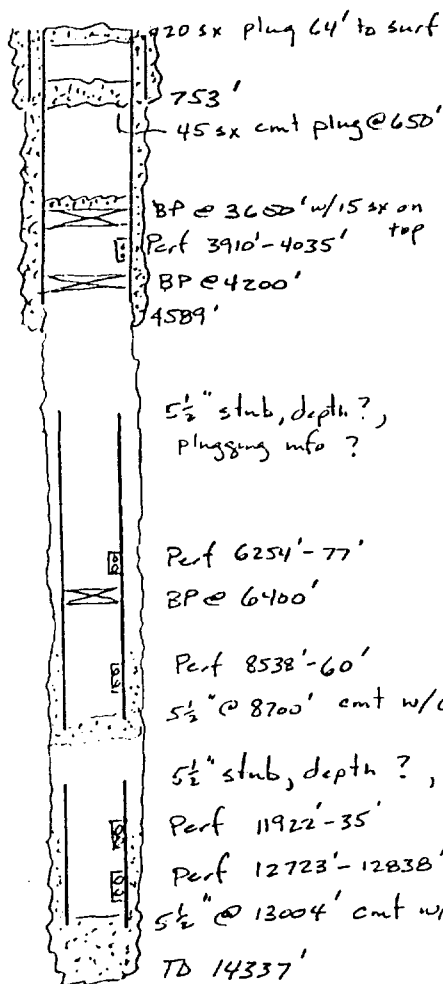 20 sx plug 64' to surf
753'
45 sx cmt plug @ 650'
BP @ 3650' w/15 sx on
top
Perf 3910'-4035'
BP @ 4200'
4589'
5½" stub, depth?,
plugging info ?
Perf 6254'-77'
BP @ 6400'
Perf 8538'-60'
5½" @ 8700' cmt w/
5½" stub, depth ?,
Perf 11922'-35'
Perf 12723'-12838'
5½" @ 13004' cmt w/
TD 14337'